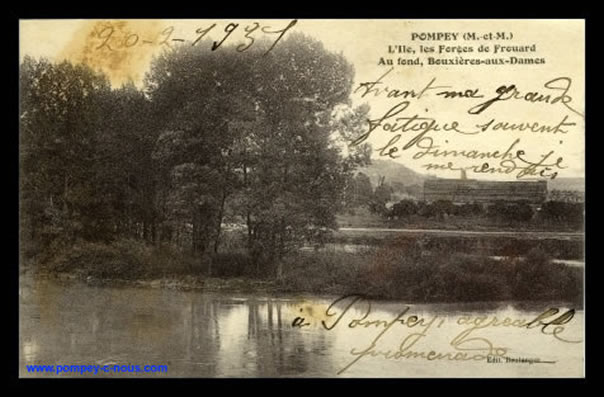 20-2-1931
POMPEY (M.-et-M.)
L'Ile, les Forges de Frouard
Au fond, Bouxières-aux-Dames
Avant ma grande
fatigue souvent
le dimanche je
me rendais
à Pompey, agreable
promenade
Edit. Boulanger
www.pompey-c-nous.com